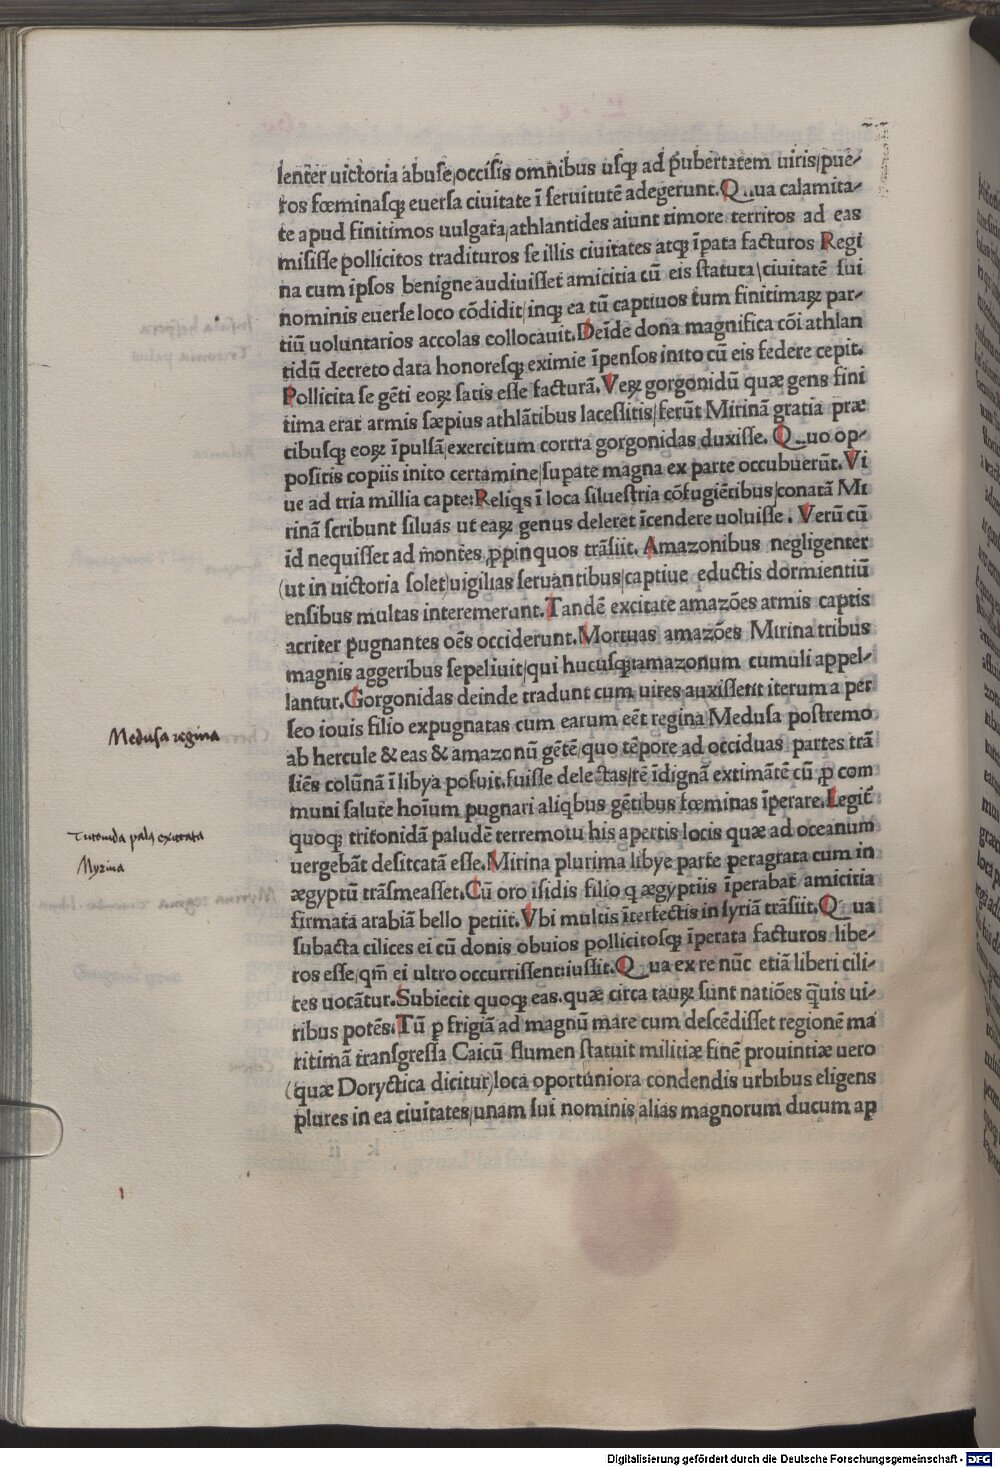 lenter uictoria abuse,occisis omnibus usq; ad pubertatem uiris/pue-
ros fœminasq; euersa ciuitate ĩ seruitutẽ adegerunt. Qua calamita-
te apud finitimos uulgata/athlantides aiunt timore territos ad eas
misisse pollicitos tradituros se illis ciuitates atq; ĩpata facturos Regi
na cum ipsos benigne audiuisset amicitia cũ eis statuta\ciuitatẽ sui
nominis euerse loco cõdidit/inq; ea tũ captiuos tum finitimaꝝ par-
tiũ uoluntarios accolas collocauit. Deĩde dona magnifica cõi athlan
tidũ decreto data honoresq; eximie ĩpensos inito cũ eis federe cepit.
Pollicita se gẽti eoꝝ satis esse facturã. Veꝝ gorgonidũ quæ gens fini
tima erat armis sæpius athlãtibus lacessitis/ferũt Mirinã gratia præ
cibusq; eoꝝ ĩpulsã/exercitum contra gorgonidas duxisse. Quo op-
positis copiis inito certamine/supate magna ex parte occubuerũt. Vi
ue ad tria millia capte: Reliqs ĩ loca siluestria cõfugiẽtibus/conatã Mi
rinã scribunt siluas ut eaꝝ genus deleret ĩcendere uoluisse. Verũ cũ
id nequisset ad mõntes ꝓpinquos trãsiit. Amazonibus negligenter
(ut in uictoria solet)uigilias seruantibus/captiue eductis dormientiũ
ensibus multas interemerunt. Tandẽ excitate amazões armis captis
acriter pugnantes oẽs occiderunt. Mortuas amazões Mirina tribus
magnis aggeribus sepeliuit/qui hucusq; amazonum cumuli appel-
lantur. Gorgonidas deinde tradunt cum uires auxissent iterum a per
seo iouis filio expugnatas cum earum eẽt regina Medusa postremo
ab hercule & eas & amazonũ gẽtẽ quo tẽpore ad occiduas partes trã
siẽs colũnã ĩ libya posuit. fuisse deletas/rẽ ĩdignã extimãtẽ cũ ꝓ com
muni salute hoĩum pugnari aliqbus gẽtibus fœminas ĩperare. Legit̃
quoq; tritonidã paludẽ terremotu his apertis locis quæ ad oceanum
uergebãt desitcatã esse. Mirina plurima libye parte peragrata cum in
ægyptũ trãsmeasset. Cũ oro isidis filio q ægyptiis ĩperabat amicitia
firmata arabiã bello petiit. Vbi multis ĩterfectis in syriã trãsiit. Qua
subacta cilices ei cũ donis obuios pollicitosq; ĩperata facturos libe-
ros esse/qm̃ ei ultro occurrissent iussit. Qua ex re nũc etiã liberi cili-
ces uocãtur. Subiecit quoq; eas. quæ circa tauꝝ sunt natiões q̃uis ui-
ribus potẽs. Tũ ꝑ frigiã ad magnũ mare cum descẽdisset regionẽ ma
ritimã transgressa Caicũ flumen statuit militiæ finẽ prouintiæ uero
(quæ Doryctica dicitur)loca oportuniora condendis urbibus eligens
plures in ea ciuitates/unam sui nominis/alias magnorum ducum ap
Medusa regina
Tritonida palus exiccata
Myrina
Digitalisierung gefördert durch die Deutsche Forschungsgemeinschaft - DFG